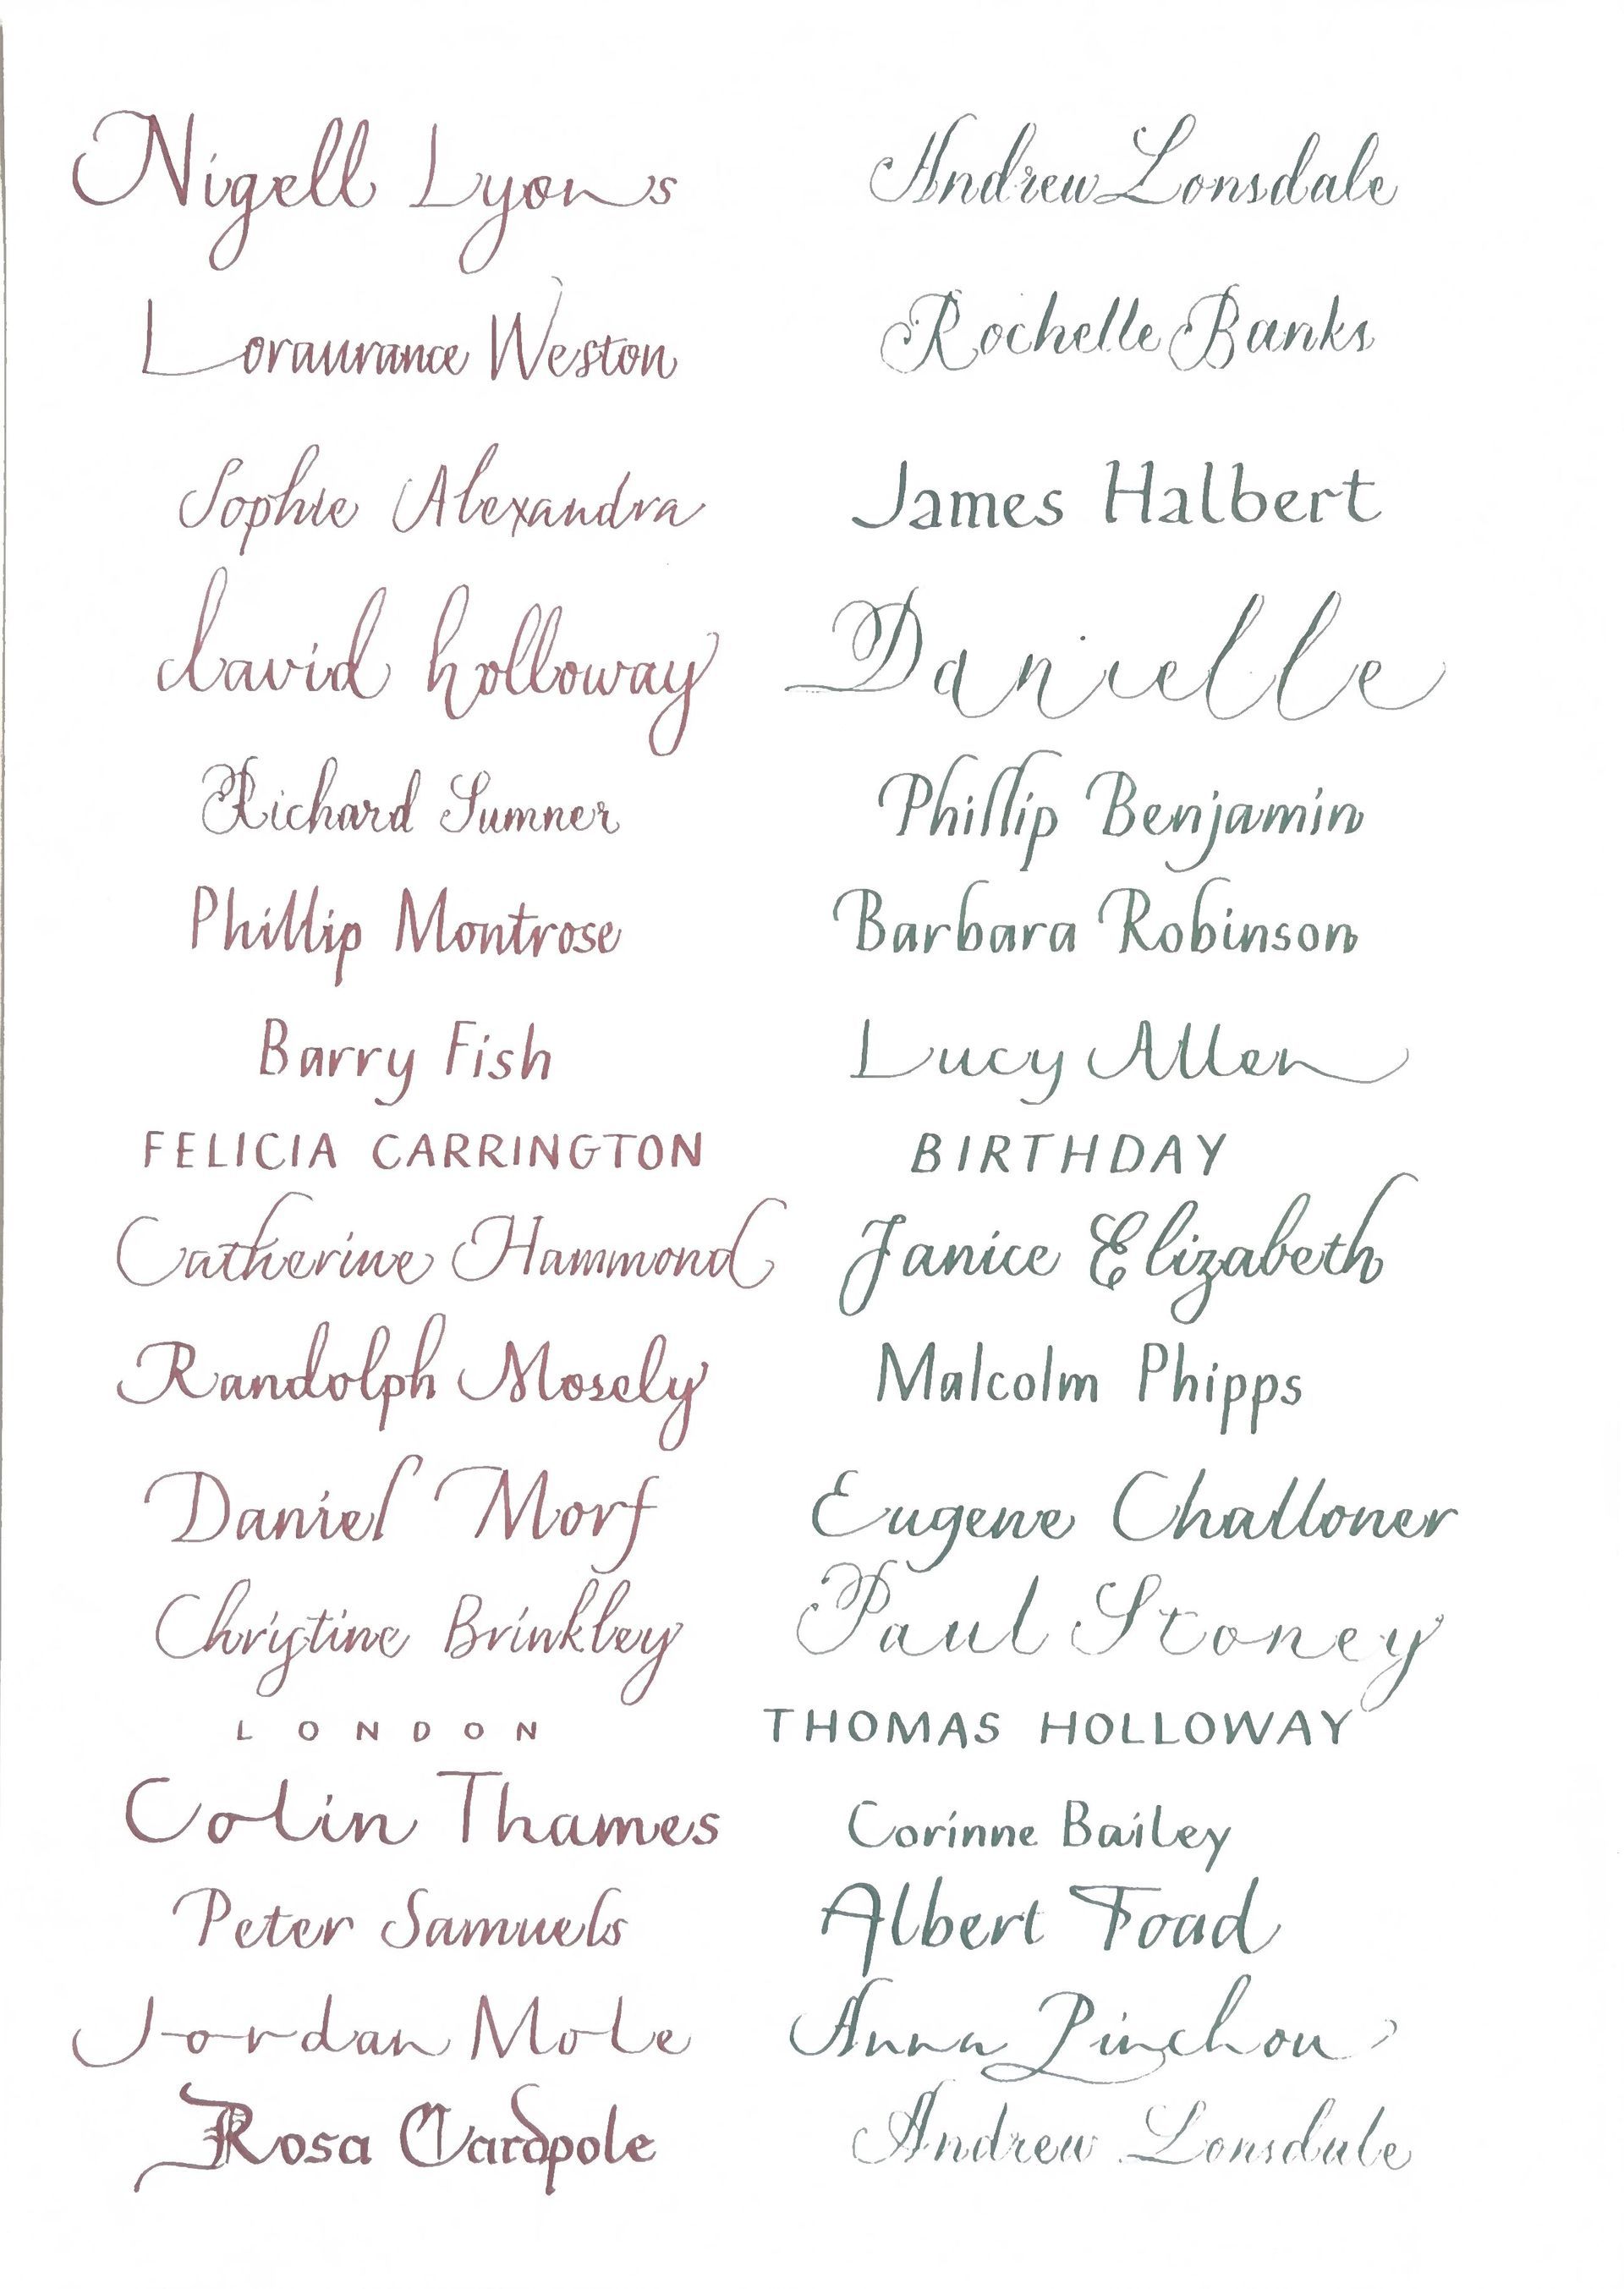 Nigell Lyons
Loraurance Weston
Sophie Alexandra
david holloway
Richard Sumner
Phillip Montrose
Barry Fish
FELICIA CARRINGTON
Catherine Hammond
Randolph Mosely
Daniel Morf
Christine Brinkley
LONDON
Colin Thames
Peter Samuels
Jordan Mole
Rosa Cardpole
Andrew Lonsdale
Rochelle Banks
James Halbert
Danielle
Phillip Benjamin
Barbara Robinson
Lucy Allen
BIRTHDAY
Janice Elizabeth
Malcolm Phipps
Eugene Challoner
Paul Stoney
THOMAS HOLLOWAY
Corinne Bailey
Albert Toad
Anna Pinchou
Andrew Lonsdale